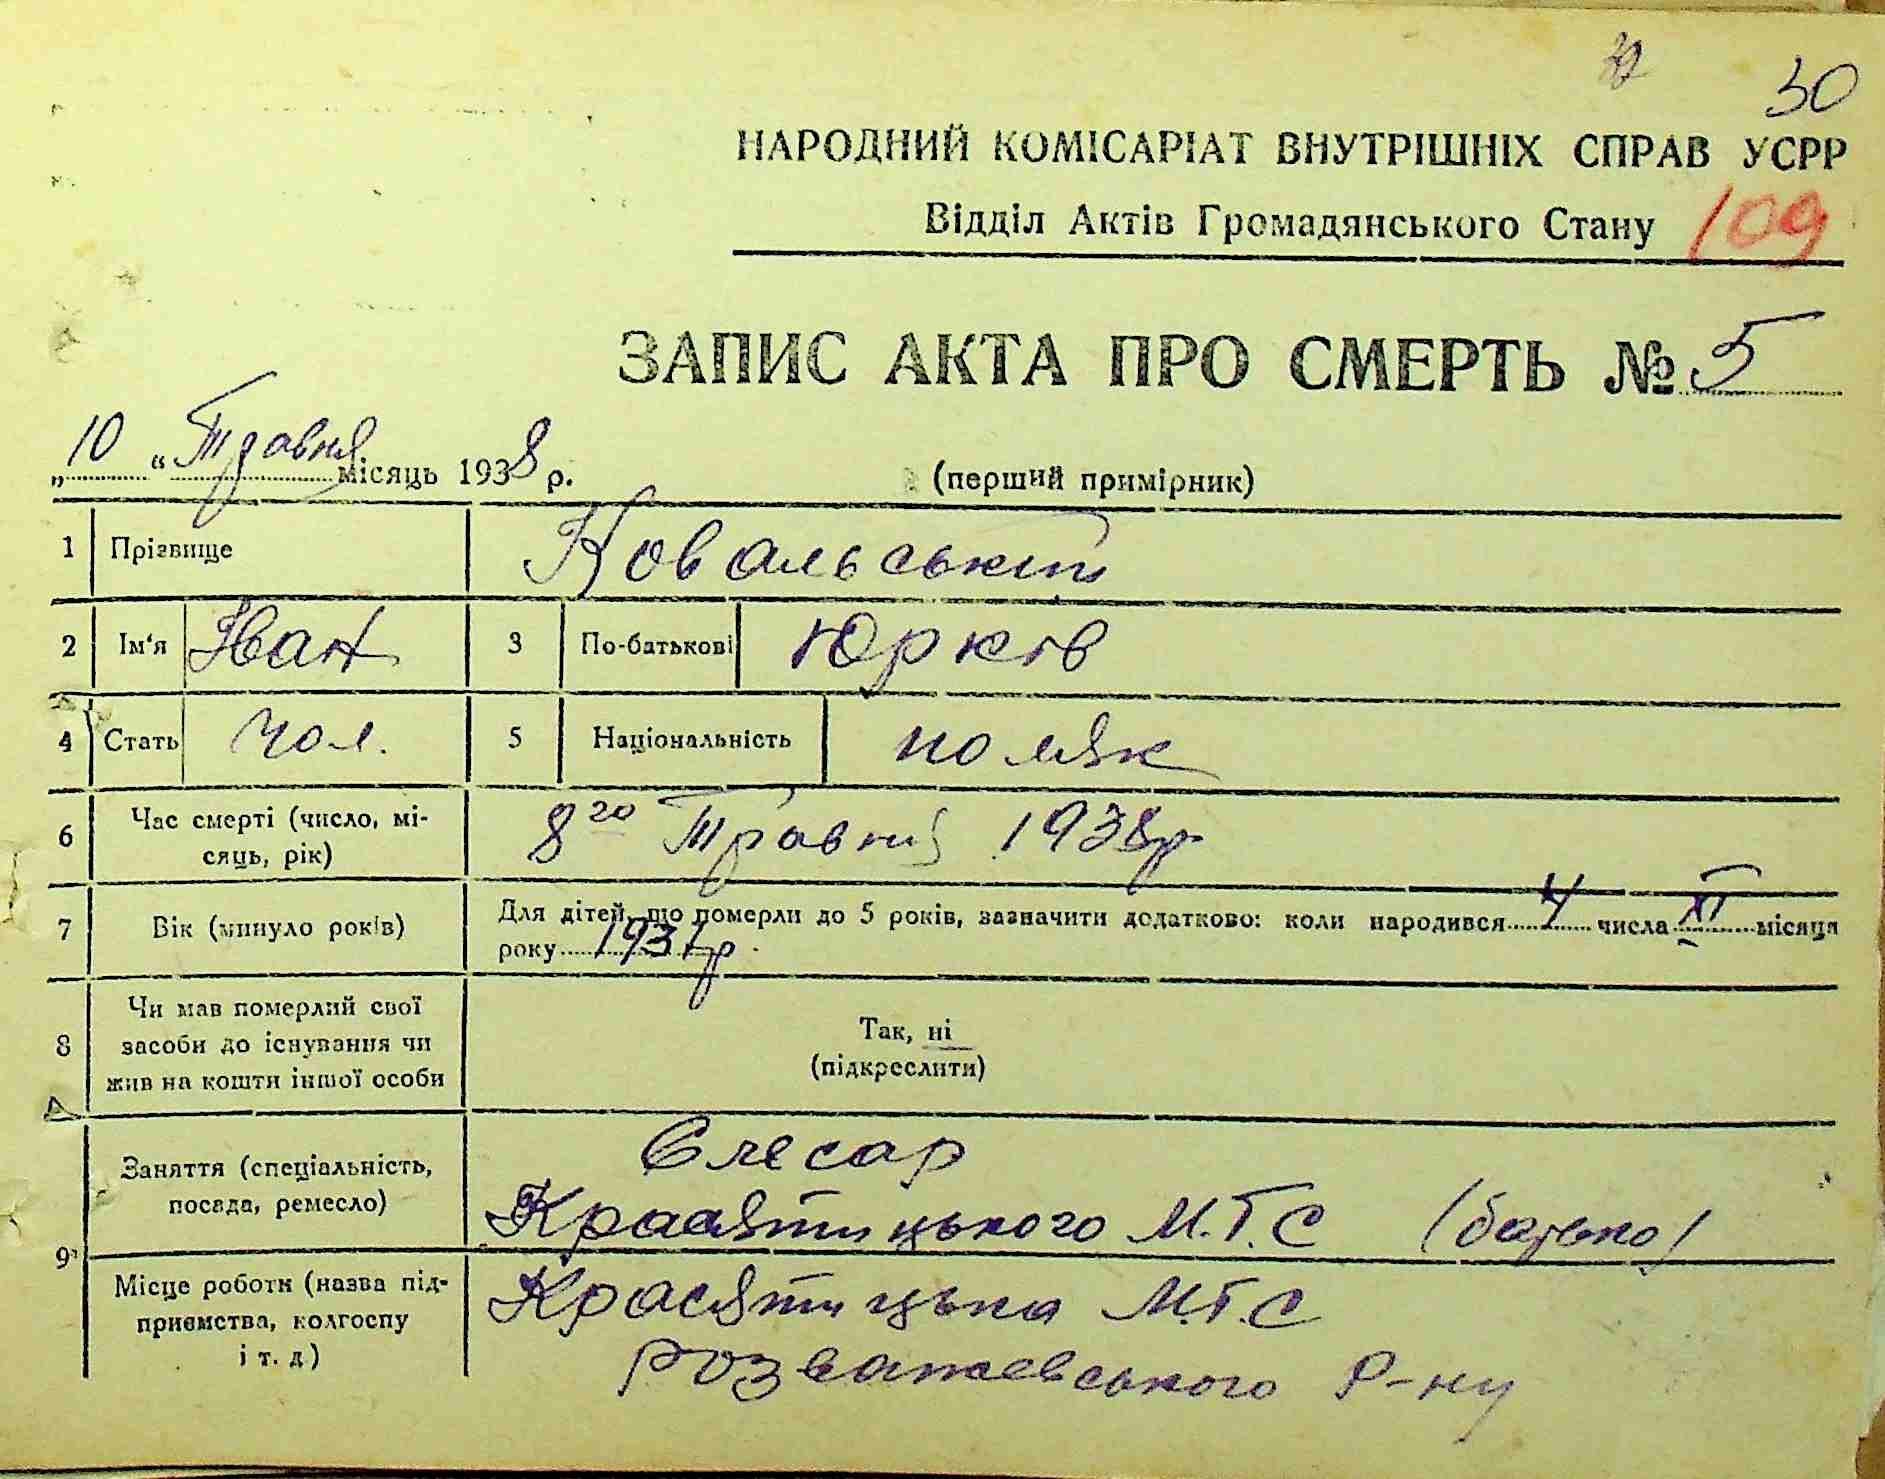 30
НАРОДНИЙ КОМІСАРІАТ ВНУТРІШНІХ СПРАВ УСРР
Відділ Актів Громадянського Стану 109
ЗАПИС АКТА ПРО СМЕРТЬ № 5
„10“ Травня місяць 1938 р. (перший примірник)
1 Прізвище Ковальський
2 Ім'я Іван 3 По-батькові Юрків
4 Стать чол. 5 Національність поляк
6 Час смерті (число, мі-
сяць, рік) 8го Травня 1938р
7 Вік (минуло років) Для дітей, що померли до 5 років, зазначити додатково: коли народився 4 числа XI місяця
року 1937р
8 Чи мав померлий свої
засоби до існування чи
жив на кошти іншої особи
Так, ні
(підкреслити)
9 Заняття (спеціальність,
посада, ремесло)
Слесар
Красятицького М.Т.С (батько)
Місце роботи (назва під-
приємства, колгоспу
і т. д)
Красятицька М.Т.С
Розважевського Р-ну